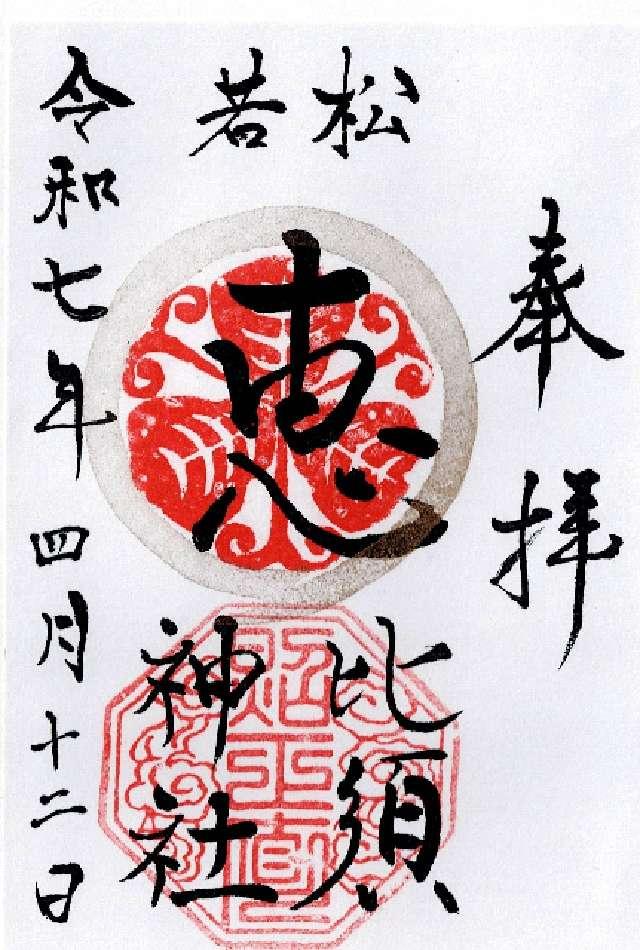 奉拝
若松
恵比須
神社
令和七年四月十二日